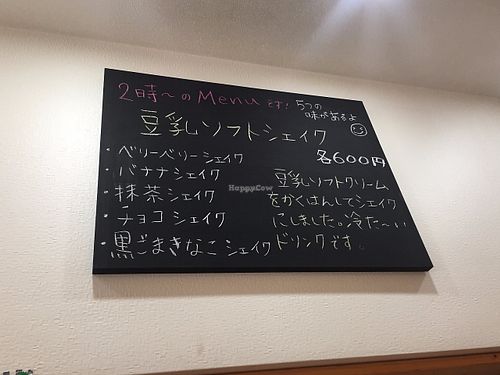 2時〜のMenuです! 5つの
味があるよ
豆乳ソフトシェイク
各600円
・ベリーベリーシェイク
・バナナシェイク
・抹茶シェイク
・チョコシェイク
・黒ごまきなこシェイク
豆乳ソフトクリーム
をかくはんしてシェイク
にしました。冷た〜い
ドリンクです。
HappyCow